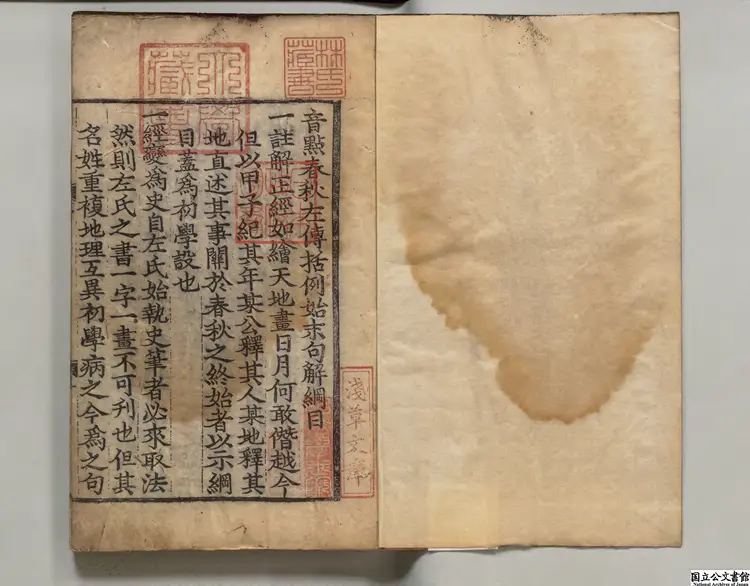 音點春秋左傳括例始末句解綱目
一註解正經如繪天地畫日月何敢僭越今
但以甲子紀其年某公釋其人某地釋其
地直述其事關於春秋之終始者以示綱
目蓋為初學設也
一經變為史自左氏始執史筆者必來取法
然則左氏之書一字一畫不可刊也但其
名姓重複地理互異初學病之今為之句
林氏藏書
淺草文庫
国立公文書館
National Archives of Japan